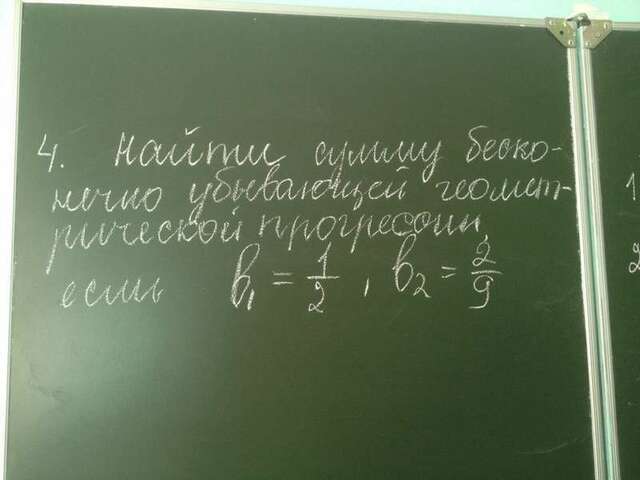 4. Найти сумму беско-
нечно убывающей геомет-
рической прогрессии,
если b₁ = 1/2, b₂ = 2/9
1
2